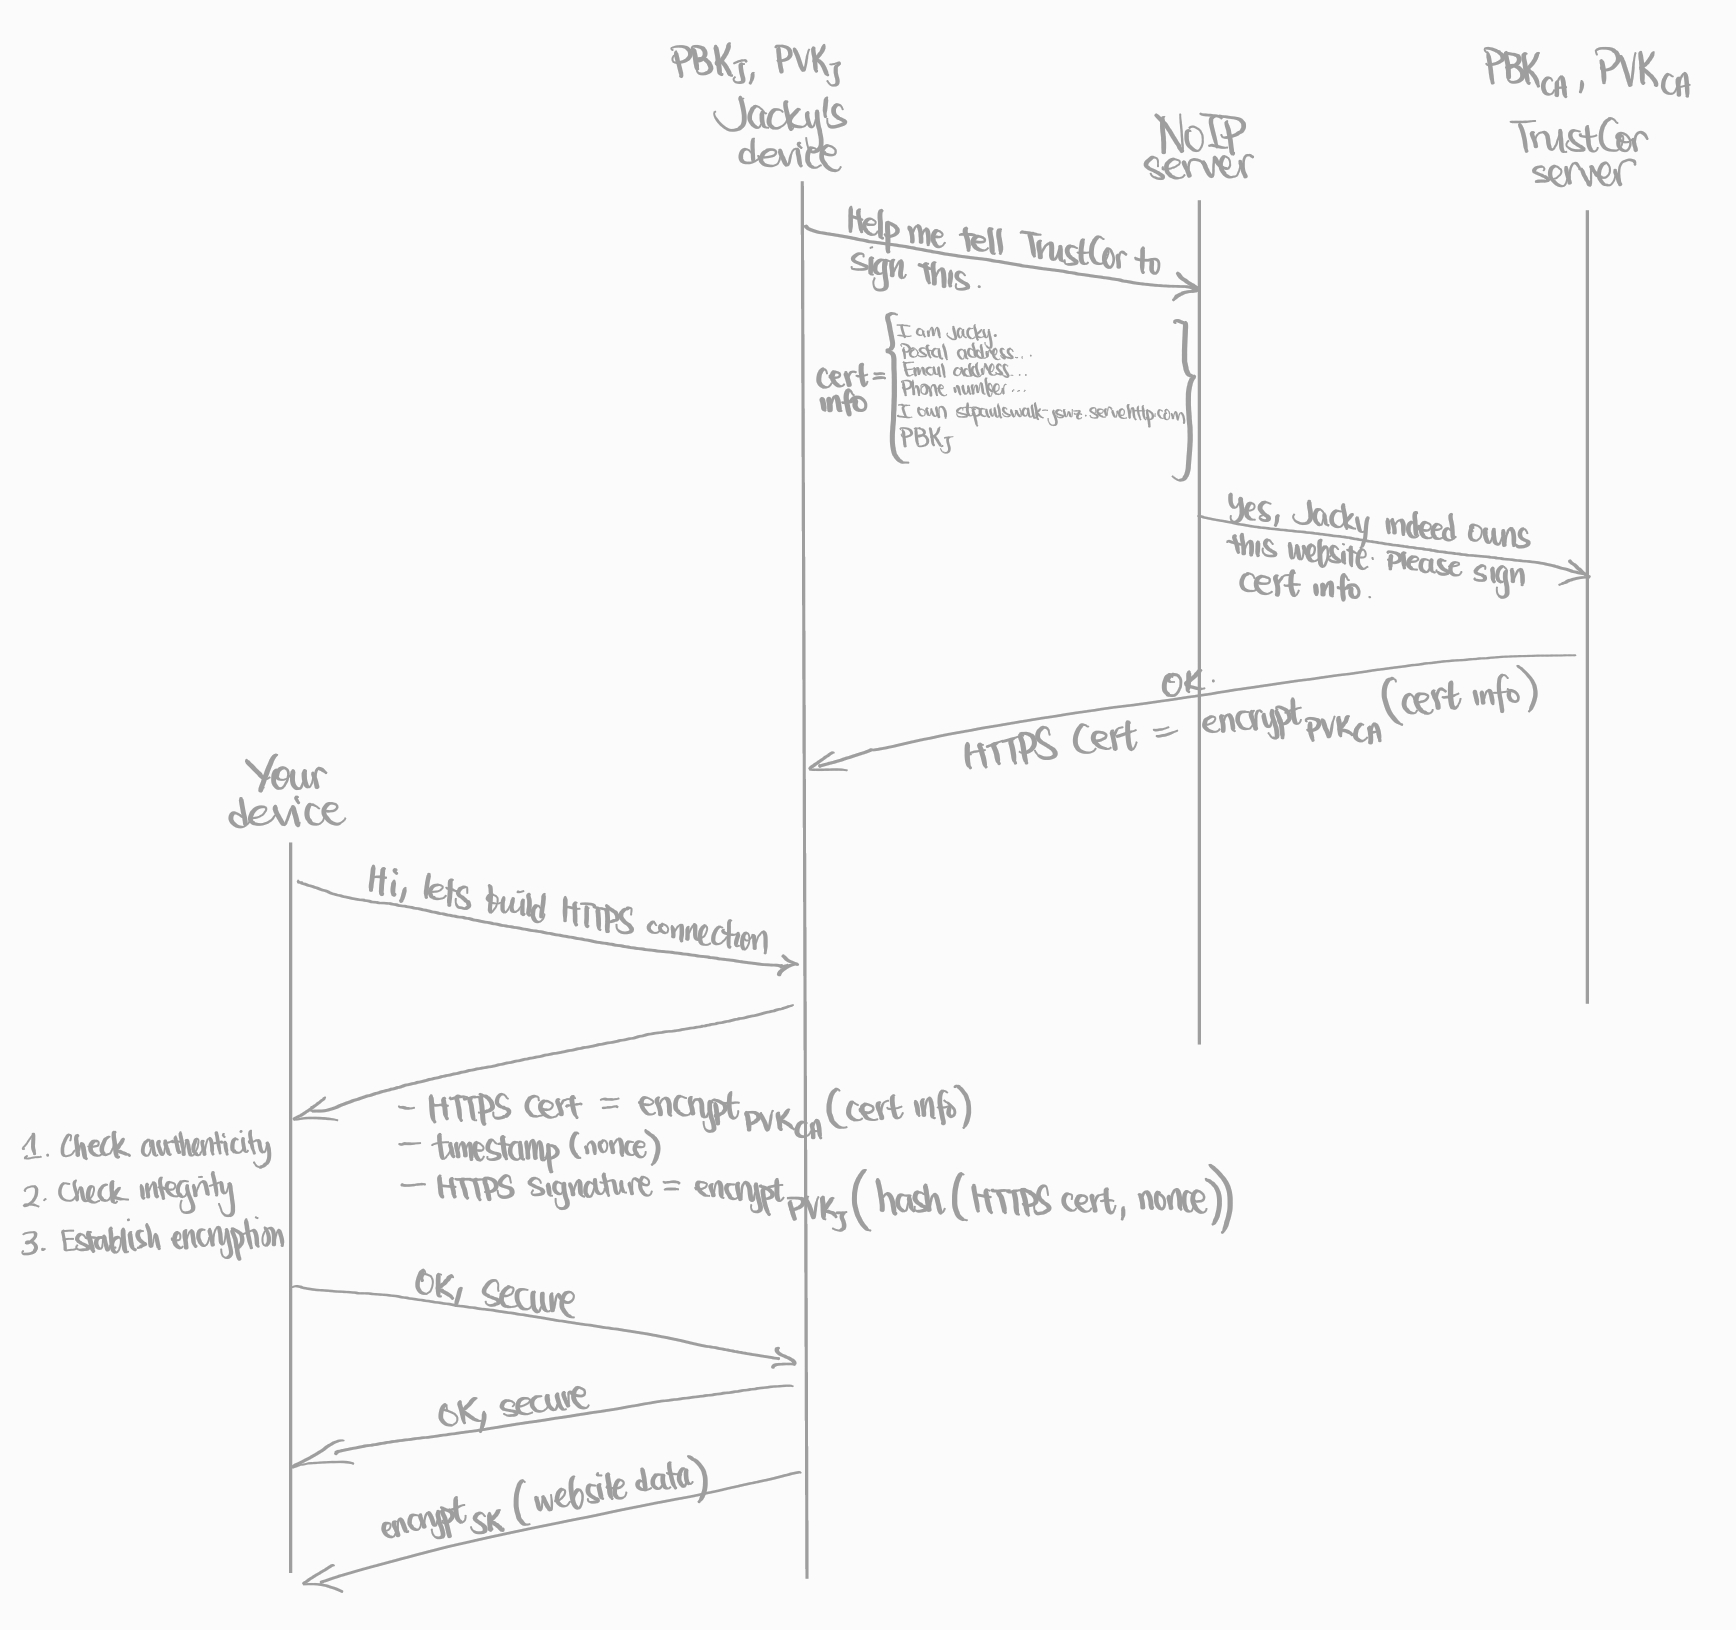 PBK_J, PVK_J
Jacky's
device
NoIP
server
PBK_CA, PVK_CA
TrustCor
server
Help me tell TrustCor to
sign this.
cert info = {
I am Jacky.
Postal address...
Email address...
Phone number...
I own stpaulswalk-jswz.servehttp.com
PBK_J
}
Yes, Jacky indeed owns
this website. Please sign
cert info.
OK.
HTTPS Cert = encrypt_PVK_CA (cert info)
Your
device
Hi, lets build HTTPS connection
- HTTPS Cert = encrypt_PVK_CA (cert info)
- timestamp (nonce)
- HTTPS signature = encrypt_PVK_J (hash (HTTPS cert, nonce))
1. Check authenticity
2. Check integrity
3. Establish encryption
OK, secure
OK, secure
encrypt_SK (website data)